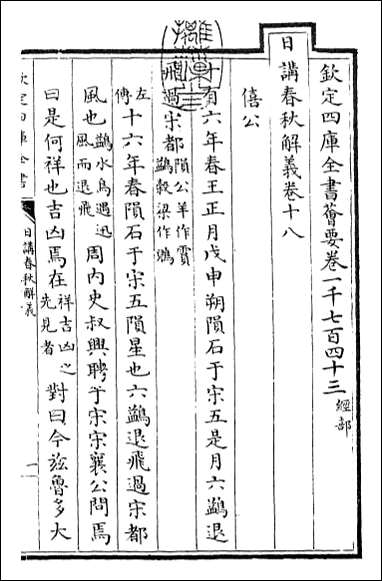 欽定四庫全書薈要卷一千七百四十三 經部
日講春秋解義卷十八
僖公
十有六年春王正月戊申朔隕石于宋五是月六鷁退
飛過宋都 隕公羊作霣 鷁榖梁作鶂
左傳 十六年春隕石于宋五隕星也六鷁退飛過宋都
風也 鷁水鳥遇迅風而退飛 周内史叔興聘于宋宋襄公問焉
曰是何祥也吉凶焉在 祥吉凶之先見者 對曰今兹魯多大
欽定四庫全書
日講春秋解義
一